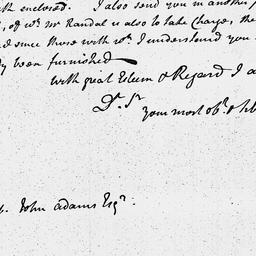 enclosed. I also send you in another
, of wch. Mr Randal is also to take Charge, the
since those with wch. I understand you
been furnished
With great Esteem & Regard I a
Dr. Sr
your most obt. & hb
John Adams Esqr.